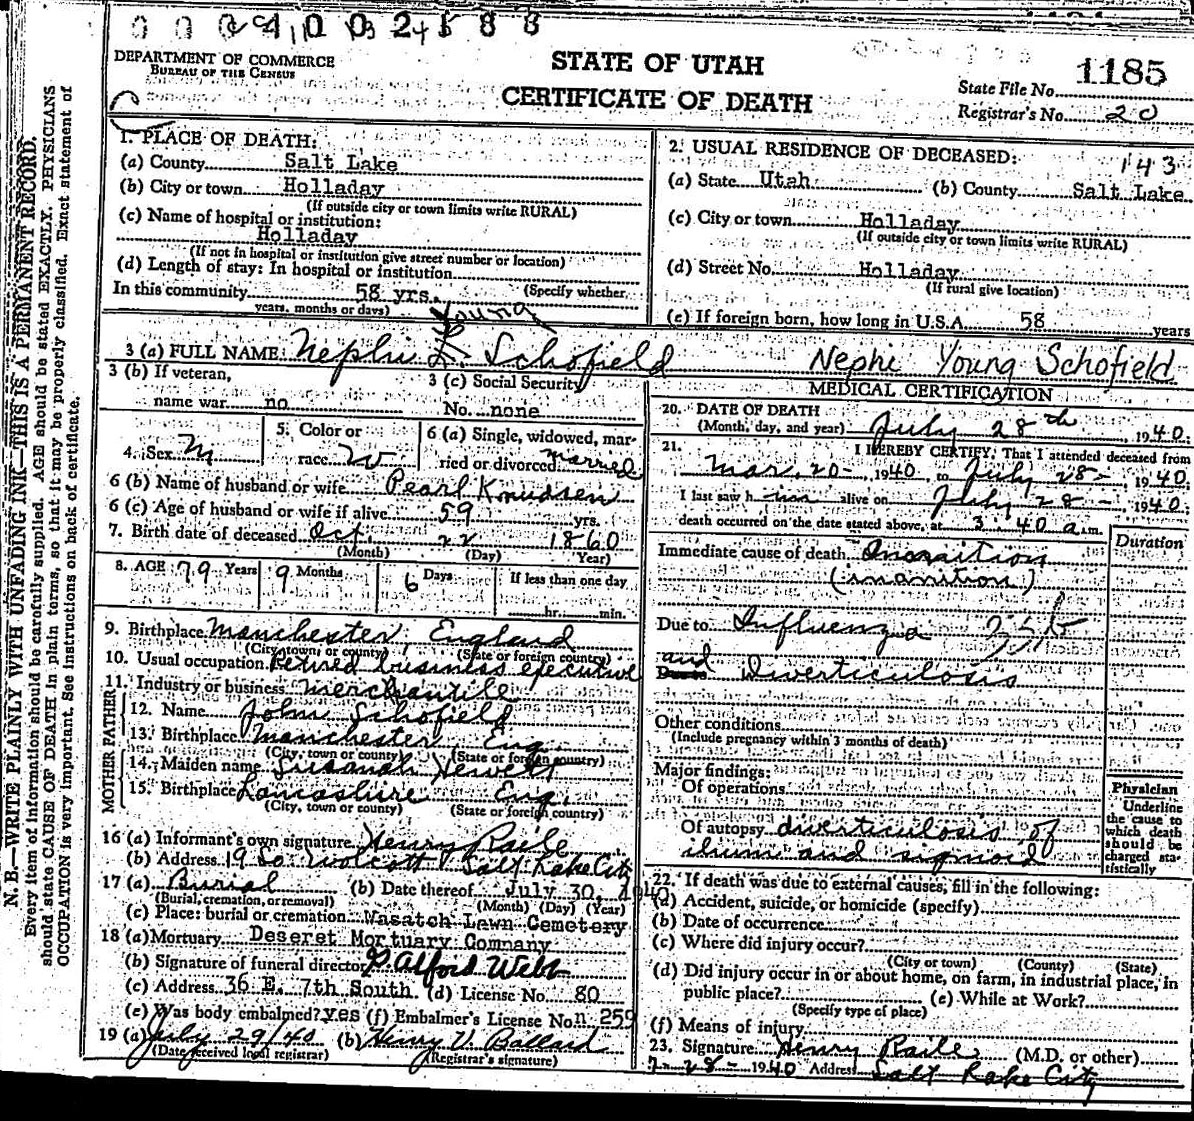 1185
DEPARTMENT OF COMMERCE
BUREAU OF THE CENSUS
STATE OF UTAH
CERTIFICATE OF DEATH
State File No.
Registrar's No. 20
N. B.—WRITE PLAINLY WITH UNFADING INK—THIS IS A PERMANENT RECORD.
Every item of information should be carefully supplied. AGE should be stated EXACTLY. PHYSICIANS
should state CAUSE OF DEATH in plain terms, so that it may be properly classified. Exact statement of
OCCUPATION is very important. See instructions on back of certificate.
1. PLACE OF DEATH:
(a) County Salt Lake
(b) City or town Holladay
(If outside city or town limits write RURAL)
(c) Name of hospital or institution:
Holladay
(If not in hospital or institution give street number or location)
(d) Length of stay: In hospital or institution
(Specify whether
In this community 58 yrs.
years, months or days)
2. USUAL RESIDENCE OF DECEASED:
143
(a) State Utah (b) County Salt Lake
(c) City or town Holladay
(If outside city or town limits write RURAL)
(d) Street No. Holladay
(If rural give location)
(e) If foreign born, how long in U.S.A. 58 years
Young
3 (a) FULL NAME: Nephi L. Schofield Nephi Young Schofield
3 (b) If veteran,
name war no
3 (c) Social Security
No. none
4. Sex M
5. Color or
race W
6 (a) Single, widowed, mar-
ried or divorced married
6 (b) Name of husband or wife Pearl Knudsen
6 (c) Age of husband or wife if alive 59 yrs.
7. Birth date of deceased Oct. 22 1860
(Month) (Day) Year)
8. AGE 79 Years 9 Months 6 Days If less than one day
hr. min.
9. Birthplace Manchester, England
(City, town, or county) (State or foreign country)
10. Usual occupation Retired business executive
11. Industry or business merchantile
FATHER
12. Name John Schofield
13. Birthplace Manchester Eng.
(City, town or county) (State or foreign country)
MOTHER
14. Maiden name Susanah
15. Birthplace Lancashire Eng.
(City, town or county) (State or foreign country)
16 (a) Informant's own signature Henry Raile
(b) Address 19 So. Wolcott Salt Lake City
17 (a) Burial (b) Date thereof July 30, 1940
(Burial, cremation, or removal) (Month) (Day) (Year)
(c) Place: burial or cremation Wasatch Lawn Cemetery
18 (a) Mortuary Deseret Mortuary Company
(b) Signature of funeral director Alford Webb
(c) Address 36 E. 7th South (d) License No. 80
(e) Was body embalmed? yes (f) Embalmer's License No. n 259
19 (a) July 29/40 (b) Henry V. Ballard
(Date received local registrar) (Registrar's signature)
MEDICAL CERTIFICATION
20. DATE OF DEATH
(Month, day, and year) July 28th, 1940.
21. I HEREBY CERTIFY, That I attended deceased from
Mar. 20 - 1940, to July 28 -, 1940.
I last saw him alive on July 28 -, 1940.
death occurred on the date stated above, at 3:40 a.m.
Duration
Immediate cause of death
(inanition)
Due to Influenza
and Diverticulosis
Other conditions
(Include pregnancy within 3 months of death)
Major findings:
Of operations
Of autopsy diverticulosis of
ilium and sigmoid
Physician
Underline
the cause to
which death
should be
charged sta-
tistically
22. If death was due to external causes, fill in the following:
(a) Accident, suicide, or homicide (specify)
(b) Date of occurrence
(c) Where did injury occur?
(City or town) (County) (State)
(d) Did injury occur in or about home, on farm, in industrial place, in
public place? (e) While at Work?
(Specify type of place)
(f) Means of injury
23. Signature Henry Raile (M.D. or other)
7-28-1940 Address Salt Lake City